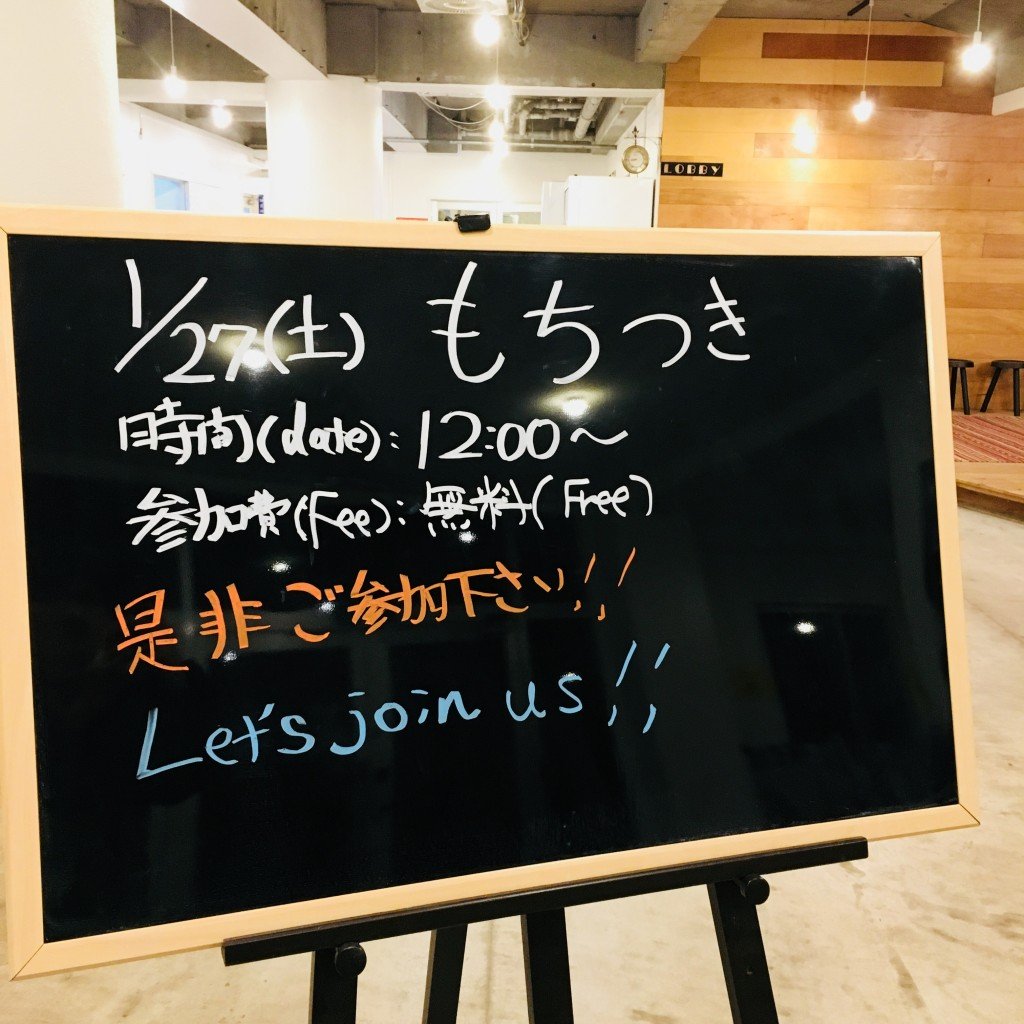 LOBBY
1/27(土) もちつき
時間(date): 12:00〜
参加費(Fee): 無料(Free)
是非ご参加下さい!!
Let's join us!!